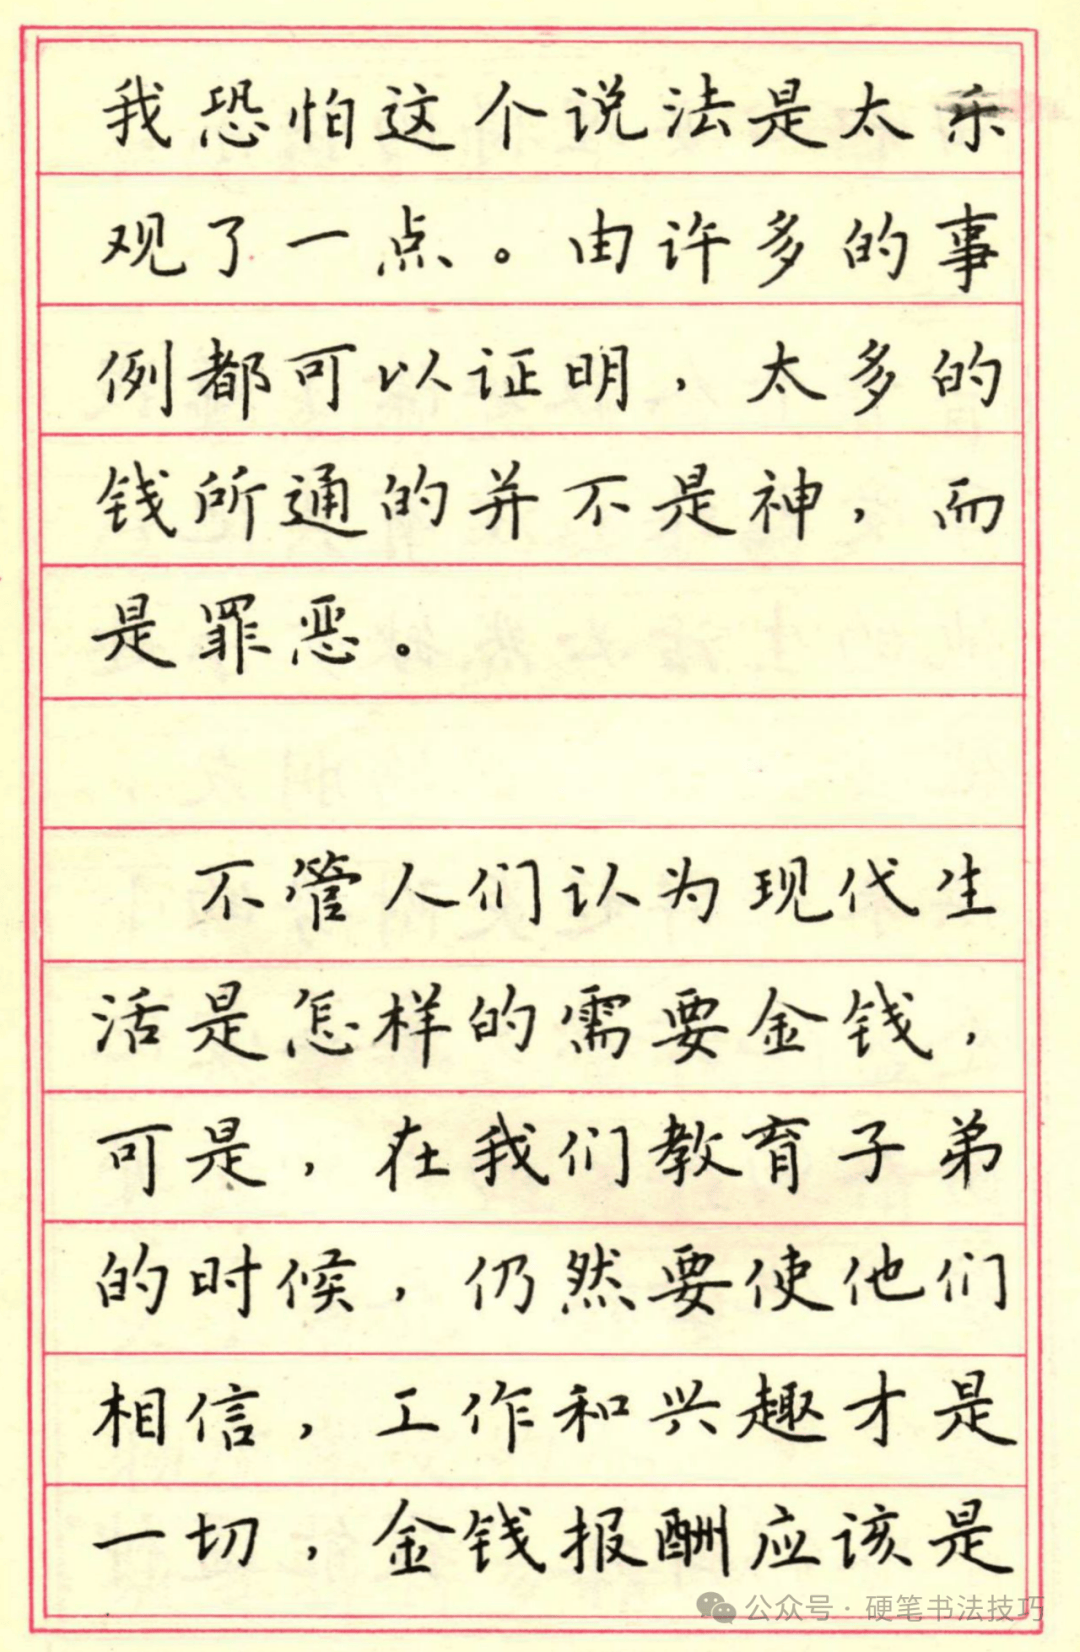 我恐怕这个说法是太乐
观了一点。由许多的事
例都可以证明，太多的
钱所通的并不是神，而
是罪恶。
不管人们认为现代生
活是怎样的需要金钱，
可是，在我们教育子弟
的时候，仍然要使他们
相信，工作和兴趣才是
一切，金钱报酬应该是
公众号·硬笔书法技巧